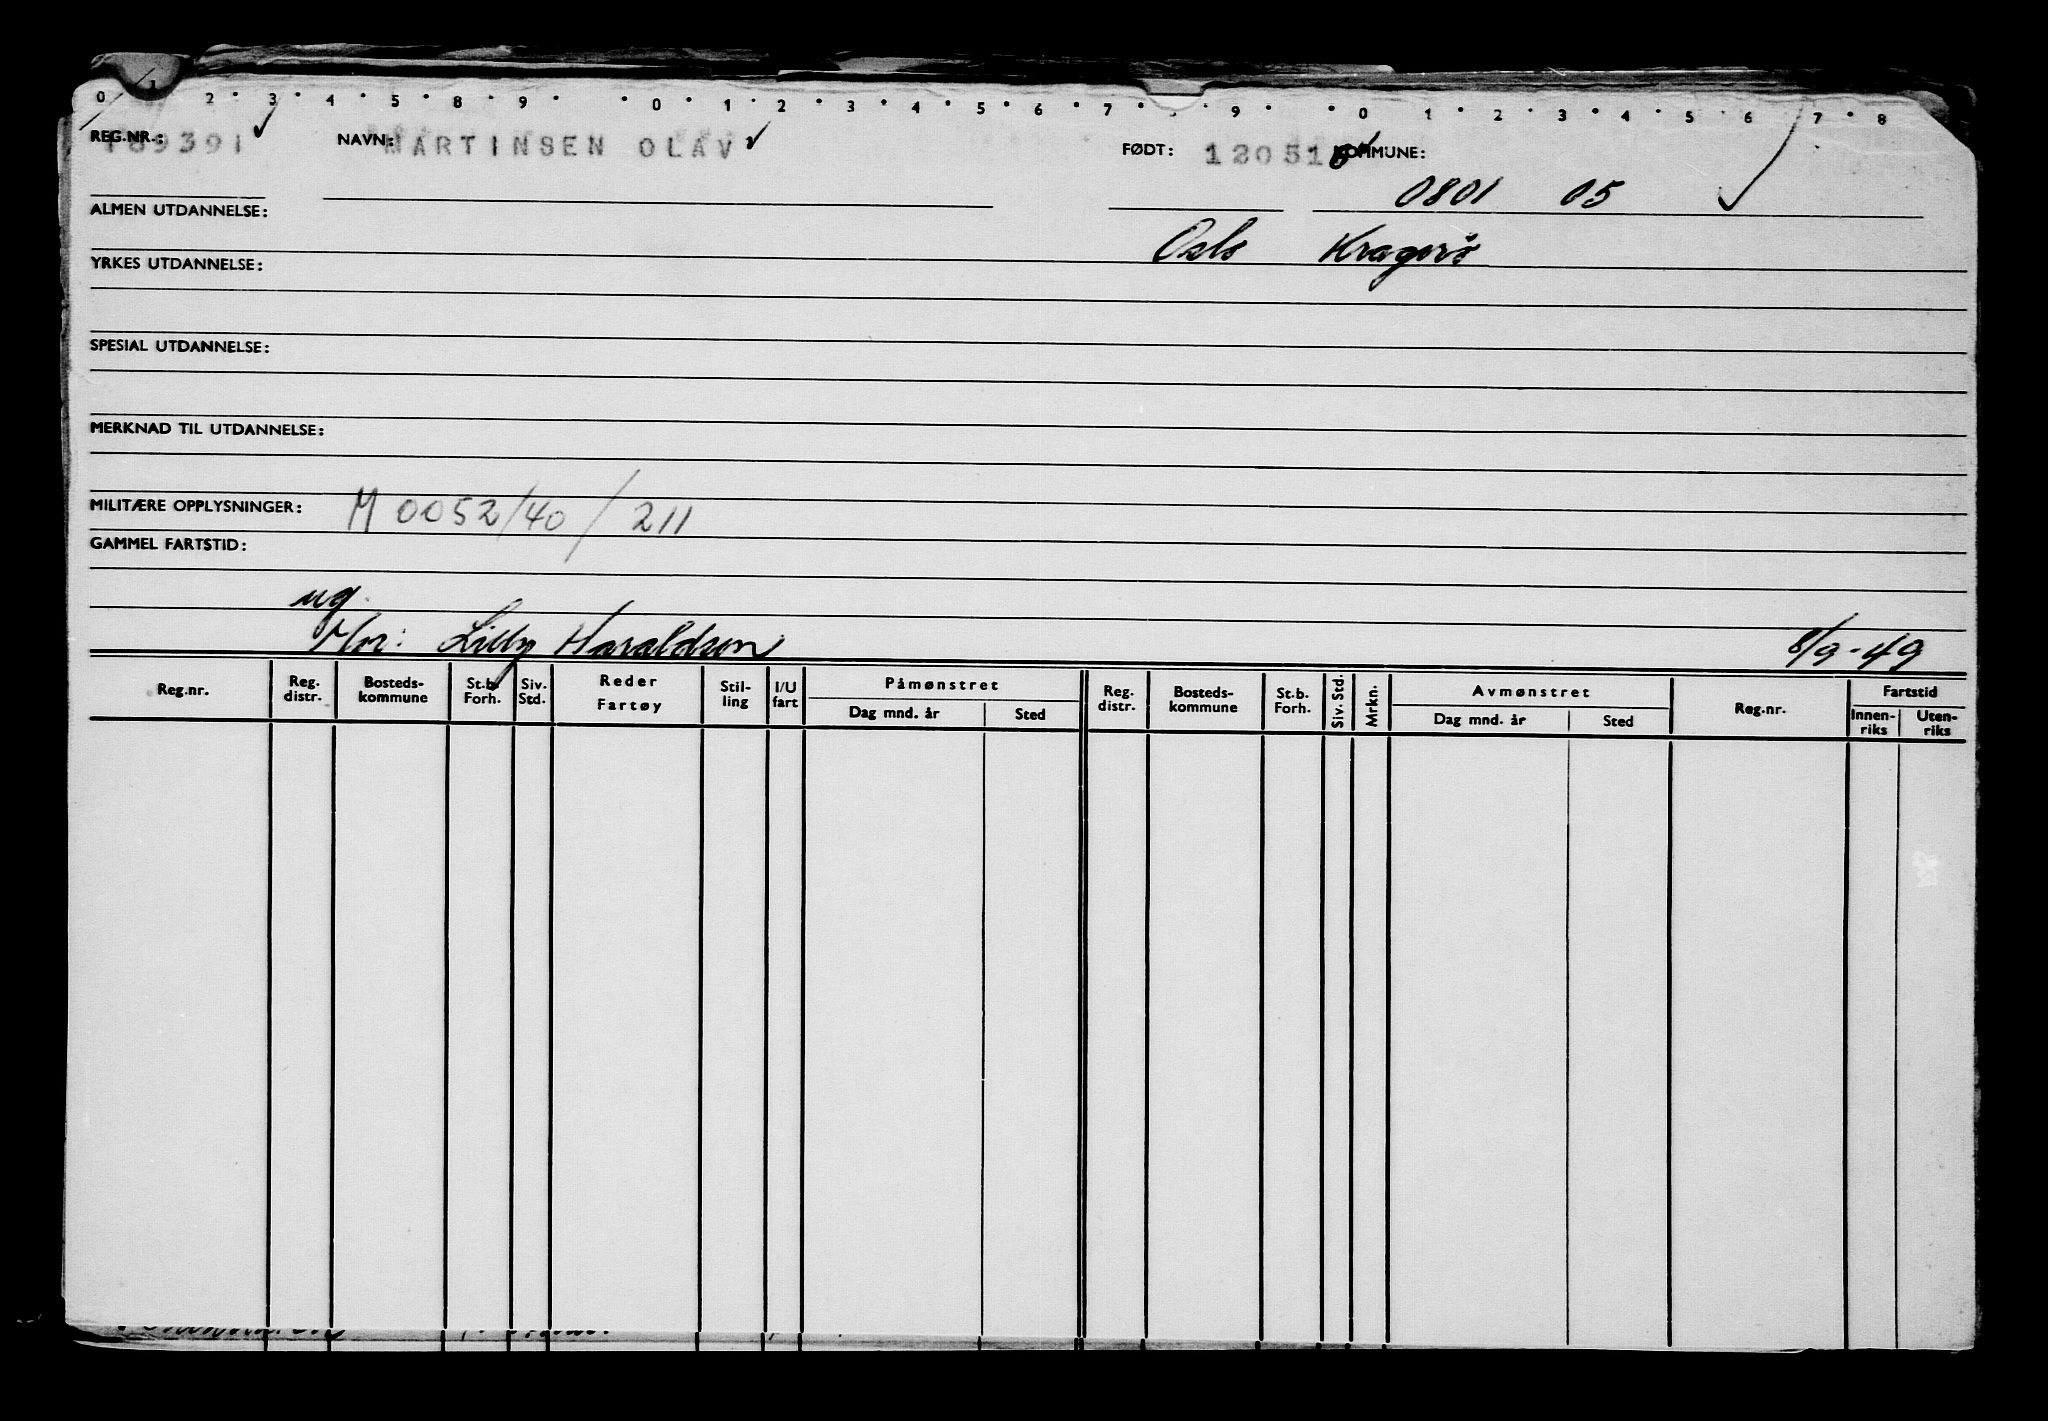 0 1 2 3 4 5 8 9 0 1 2 3 4 5 6 7 9 0 1 2 3 4 5 6 7 8
REG.NR.: 189391 NAVN: MARTINSEN OLAV FØDT: 120518 KOMMUNE:
0801 05
ALMEN UTDANNELSE:
Oslo Kragerø
YRKES UTDANNELSE:
SPESIAL UTDANNELSE:
MERKNAD TIL UTDANNELSE:
MILITÆRE OPPLYSNINGER: M 0052/40 / 211
GAMMEL FARTSTID:
ug.
Mor: Lilly Haraldsen 8/9-49
Reg.nr. Reg. distr. Bosteds-kommune St.b. Forh. Siv. Std. Reder Fartøy Stil-ling I/U fart Påmønstret Dag mnd. år Sted Reg. distr. Bosteds-kommune St.b. Forh. Siv. Std. Mrkn. Avmønstret Dag mnd. år Sted Reg.nr. Fartstid Innen-riks Uten-riks